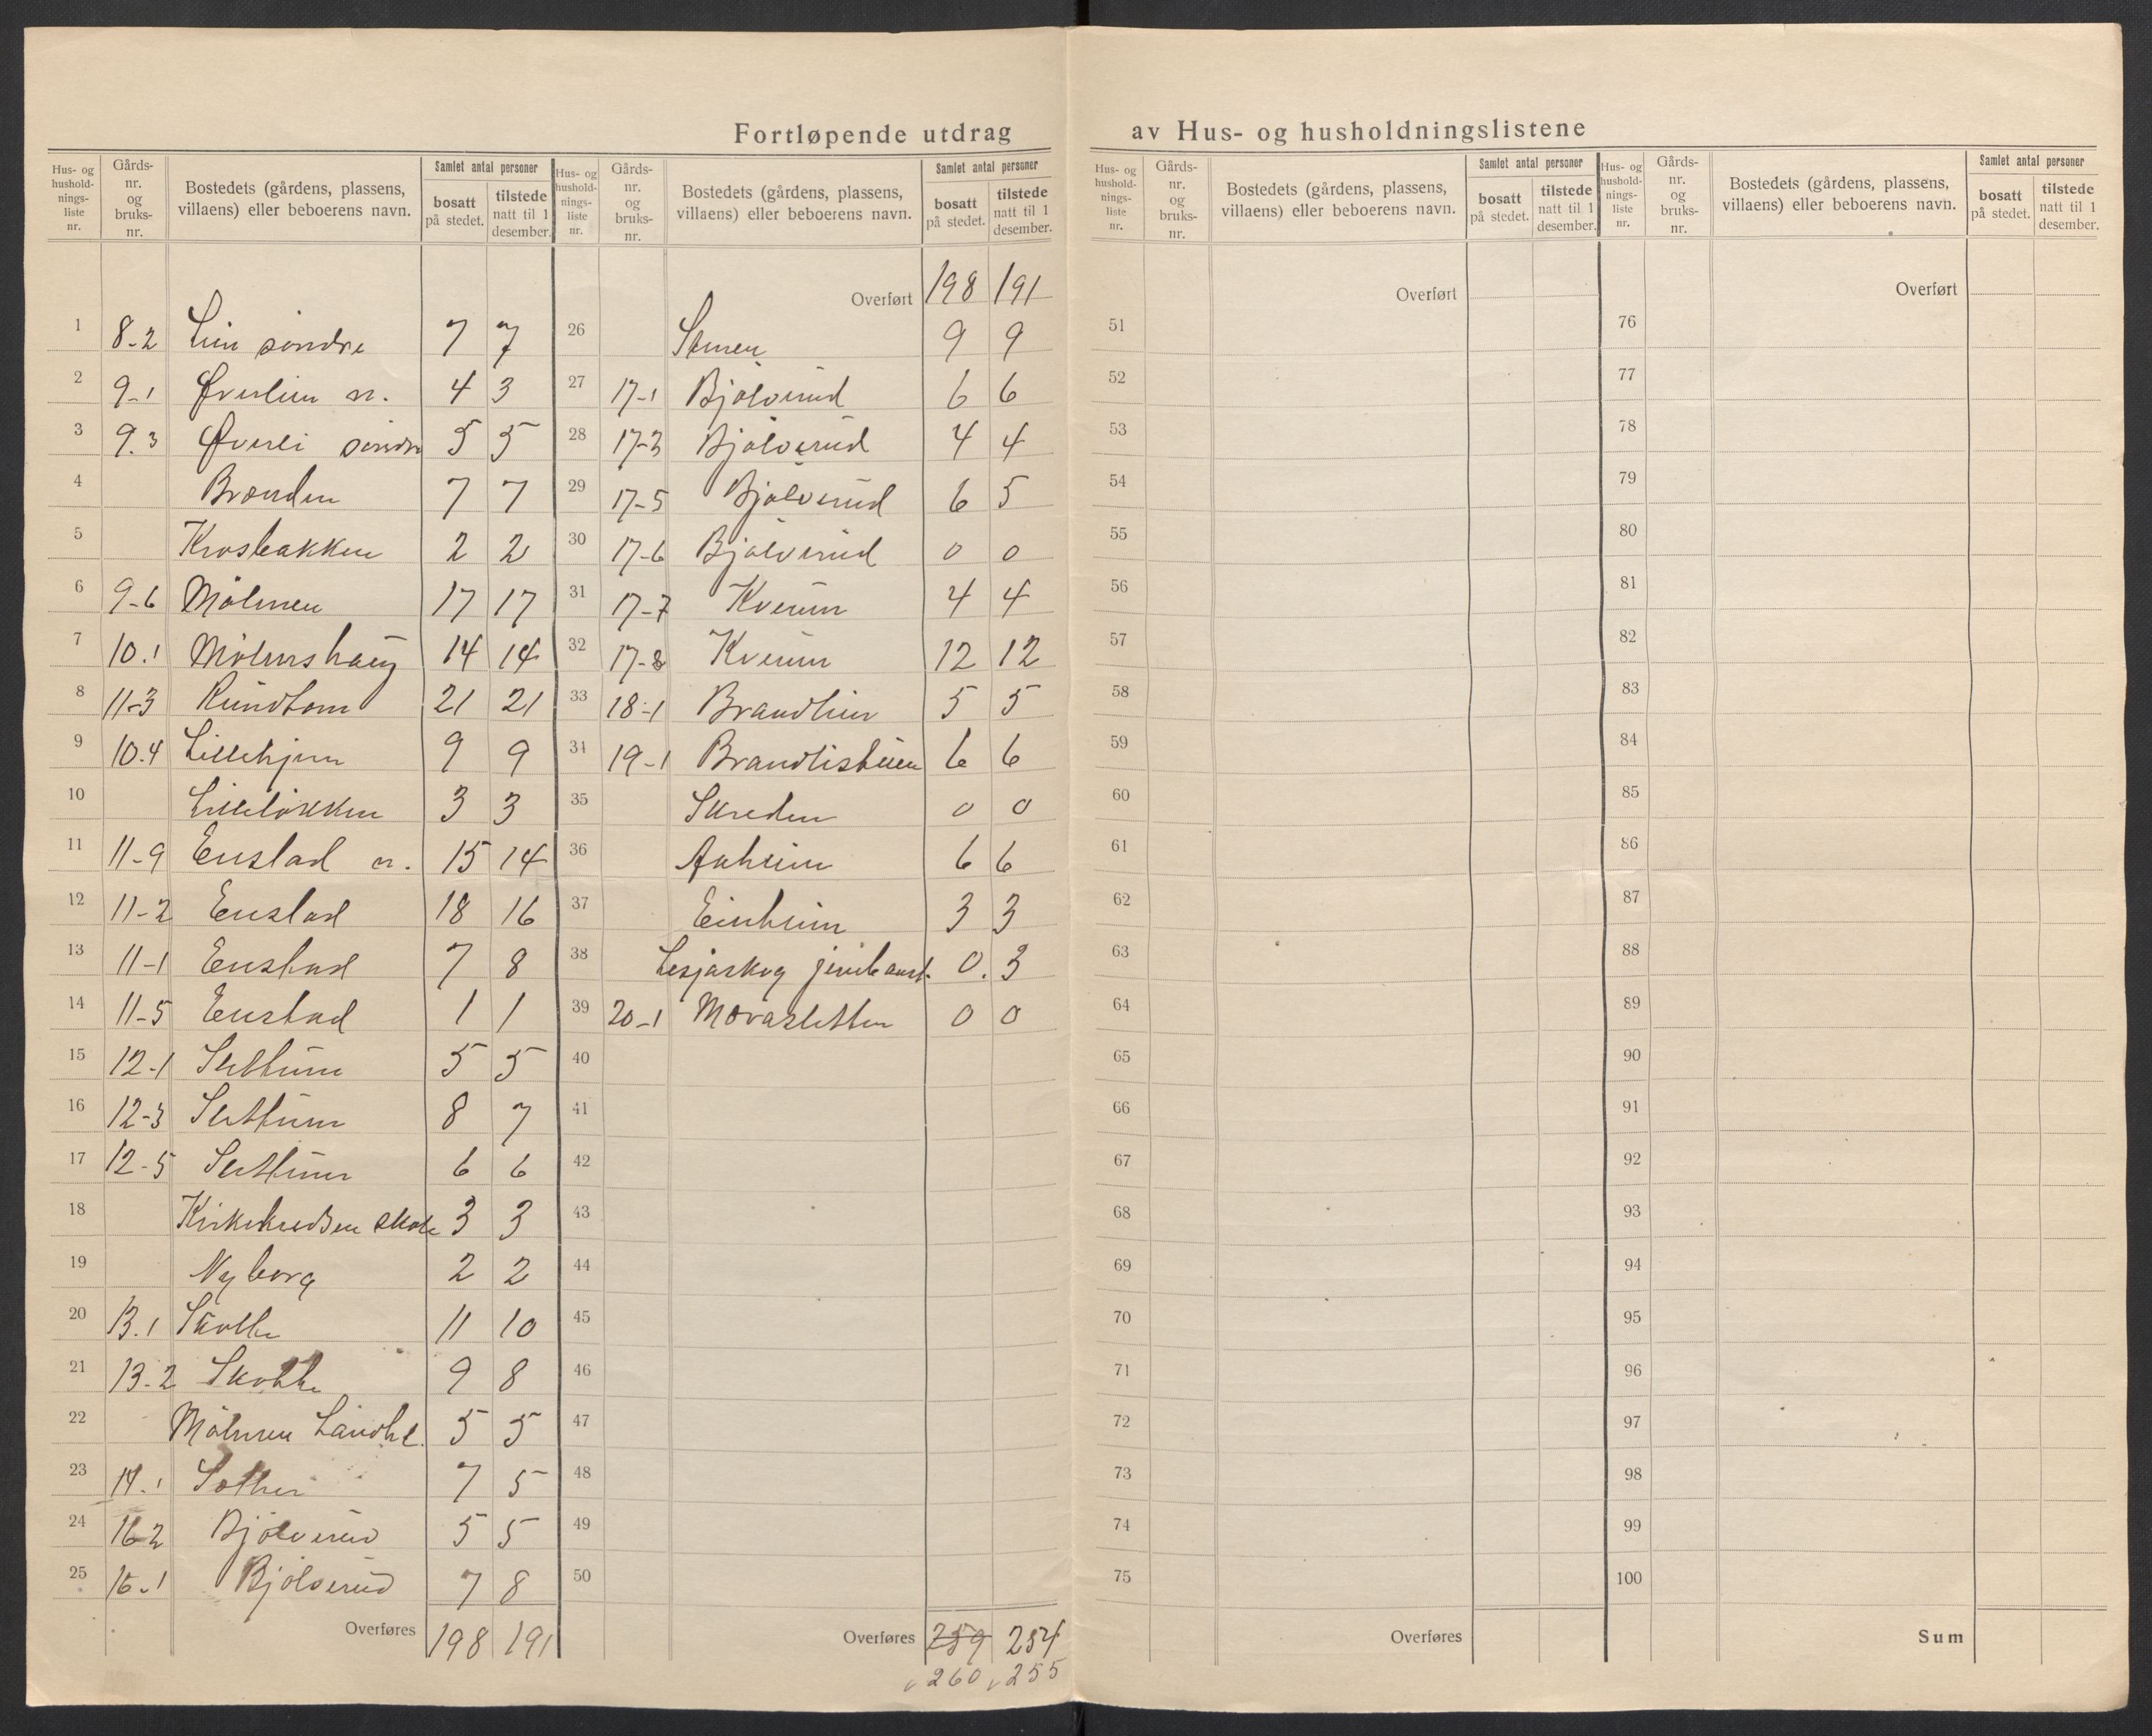 Fortløpende utdrag av Hus- og husholdningslistene
Hus- og hushold-nings-liste nr. Gårds-nr. og bruks-nr. Bostedets (gårdens, plassens, villaens) eller beboerens navn. Samlet antal personer bosatt på stedet. tilstede natt til 1 desember.
1 8-2 Lien søndre 7 7
2 9-1 Øverlien n. 4 3
3 9.3 Øverli søndre 5 5
4 Brænden 7 7
5 Krosbakken 2 2
6 9-6 Mølmen 17 17
7 10.1 Mølmshaug 14 14
8 11-3 Rundtom 21 21
9 10.4 Lillehjem 9 9
10 Lilleløkken 3 3
11 11-9 Enstad n. 15 14
12 11-2 Enstad 18 16
13 11-1 Enstad 7 8
14 11-5 Enstad 1 1
15 12-1 Slettum 5 5
16 12-3 Slettum 8 7
17 12-5 Slettum 6 6
18 Kirkekredsen skole 3 3
19 Nyborg 2 2
20 13.1 Skotte 11 10
21 13-2 Skotte 9 8
22 Mølmen Landh. 5 5
23 14.1 7 5
24 16-2 Bjølverud 5 5
25 16-1 Bjølverud 7 8
Overføres 198 191
Hus- og hushold-nings-liste nr. Gårds-nr. og bruks-nr. Bostedets (gårdens, plassens, villaens) eller beboerens navn. Samlet antal personer bosatt på stedet. tilstede natt til 1 desember.
Overført 198 191
26 9 9
27 17-1 Bjølverud 6 6
28 17-3 Bjølverud 4 4
29 17-5 Bjølverud 6 5
30 17-6 Bjølverud 0 0
31 17-7 Kverum 4 4
32 17-8 Kverum 12 12
33 18-1 Brandlien 5 5
34 19-1 Brandlistuen 6 6
35 Skreden 0 0
36 Aaheim 6 6
37 Einheim 3 3
38 Lesjaskog jernbanest. 0. 3
39 20-1 Morasletten 0 0
40
41
42
43
44
45
46
47
48
49
50
Overføres 259 254
260 255
Hus- og hushold-nings-liste nr. Gårds-nr. og bruks-nr. Bostedets (gårdens, plassens, villaens) eller beboerens navn. Samlet antal personer bosatt på stedet. tilstede natt til 1 desember.
Overført
51
52
53
54
55
56
57
58
59
60
61
62
63
64
65
66
67
68
69
70
71
72
73
74
75
Overføres
Hus- og hushold-nings-liste nr. Gårds-nr. og bruks-nr. Bostedets (gårdens, plassens, villaens) eller beboerens navn. Samlet antal personer bosatt på stedet. tilstede natt til 1 desember.
Overført
76
77
78
79
80
81
82
83
84
85
86
87
88
89
90
91
92
93
94
95
96
97
98
99
100
Sum